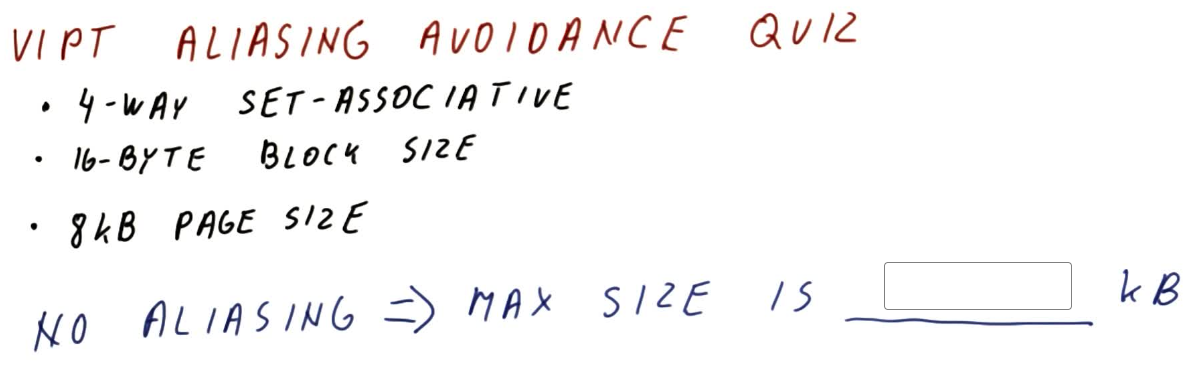 VIPT ALIASING AVOIDANCE QUIZ
• 4-WAY SET-ASSOCIATIVE
• 16-BYTE BLOCK SIZE
• 8kB PAGE SIZE
NO ALIASING => MAX SIZE IS ____ kB